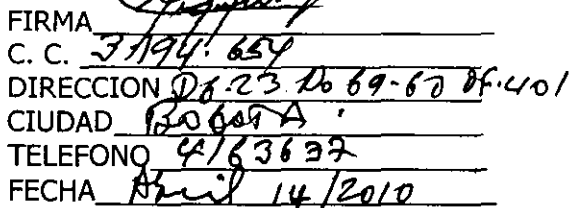 FIRMA
C. C. 3194.654
DIRECCION Dg. 23 No 69-60 Of. 401
CIUDAD BOGOTA
TELEFONO 4163637
FECHA Abril 14/2010